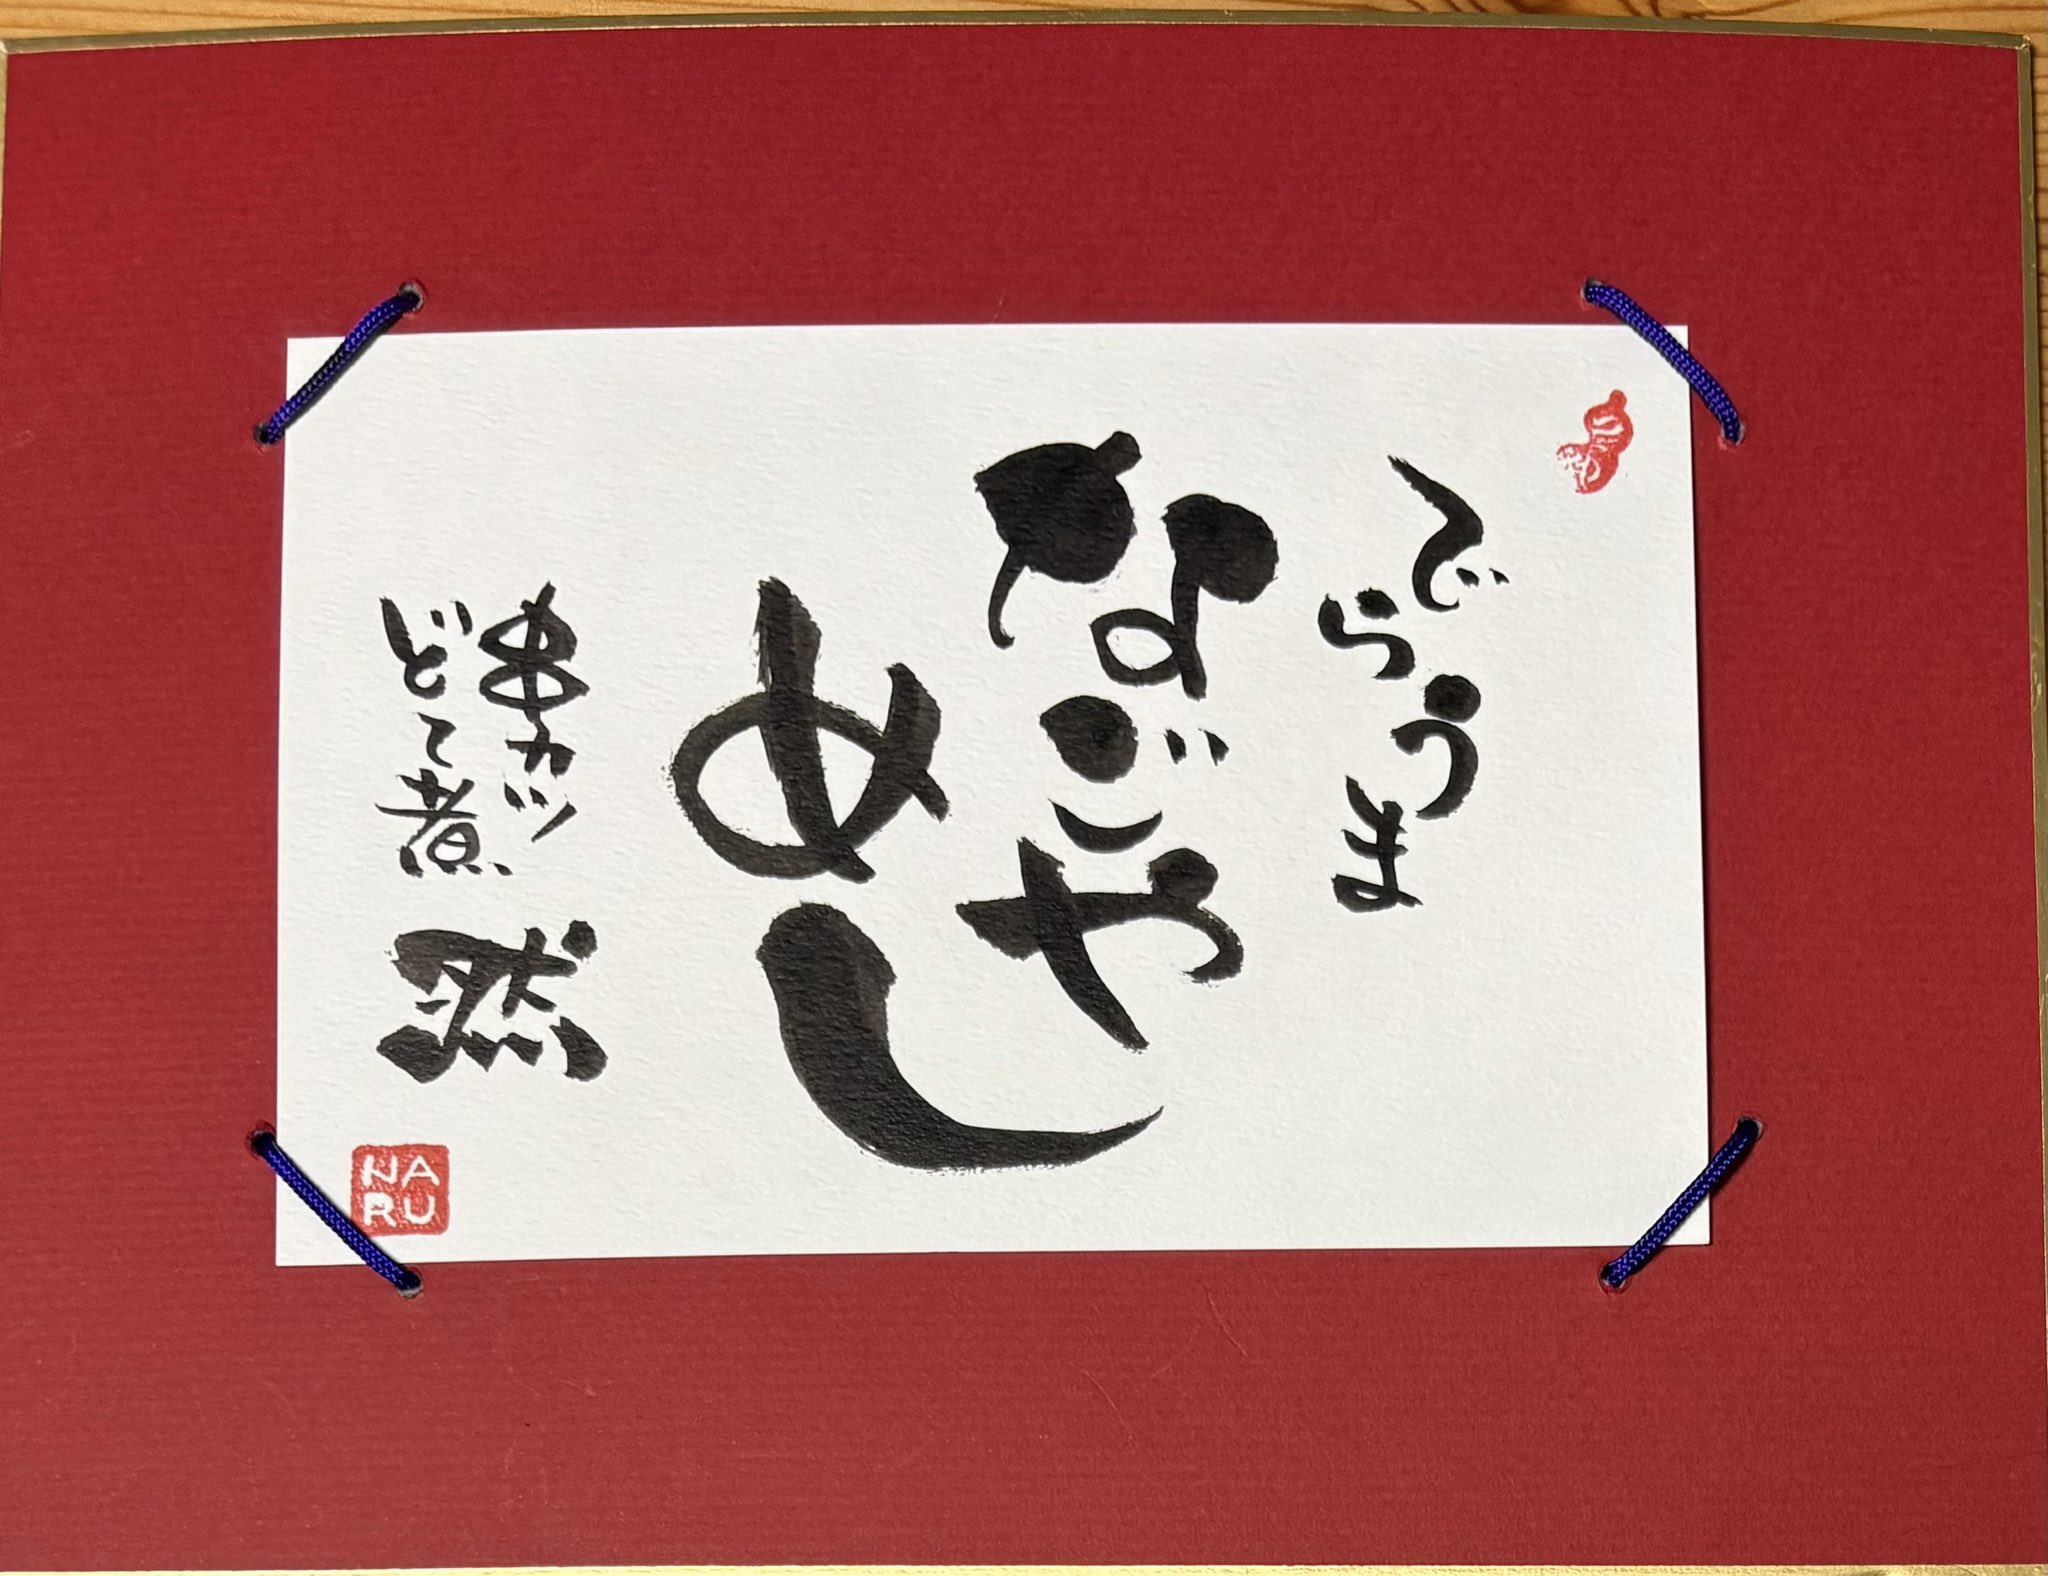 でらうま
なごや
めし
串カツ
どて煮
然
NA
RU